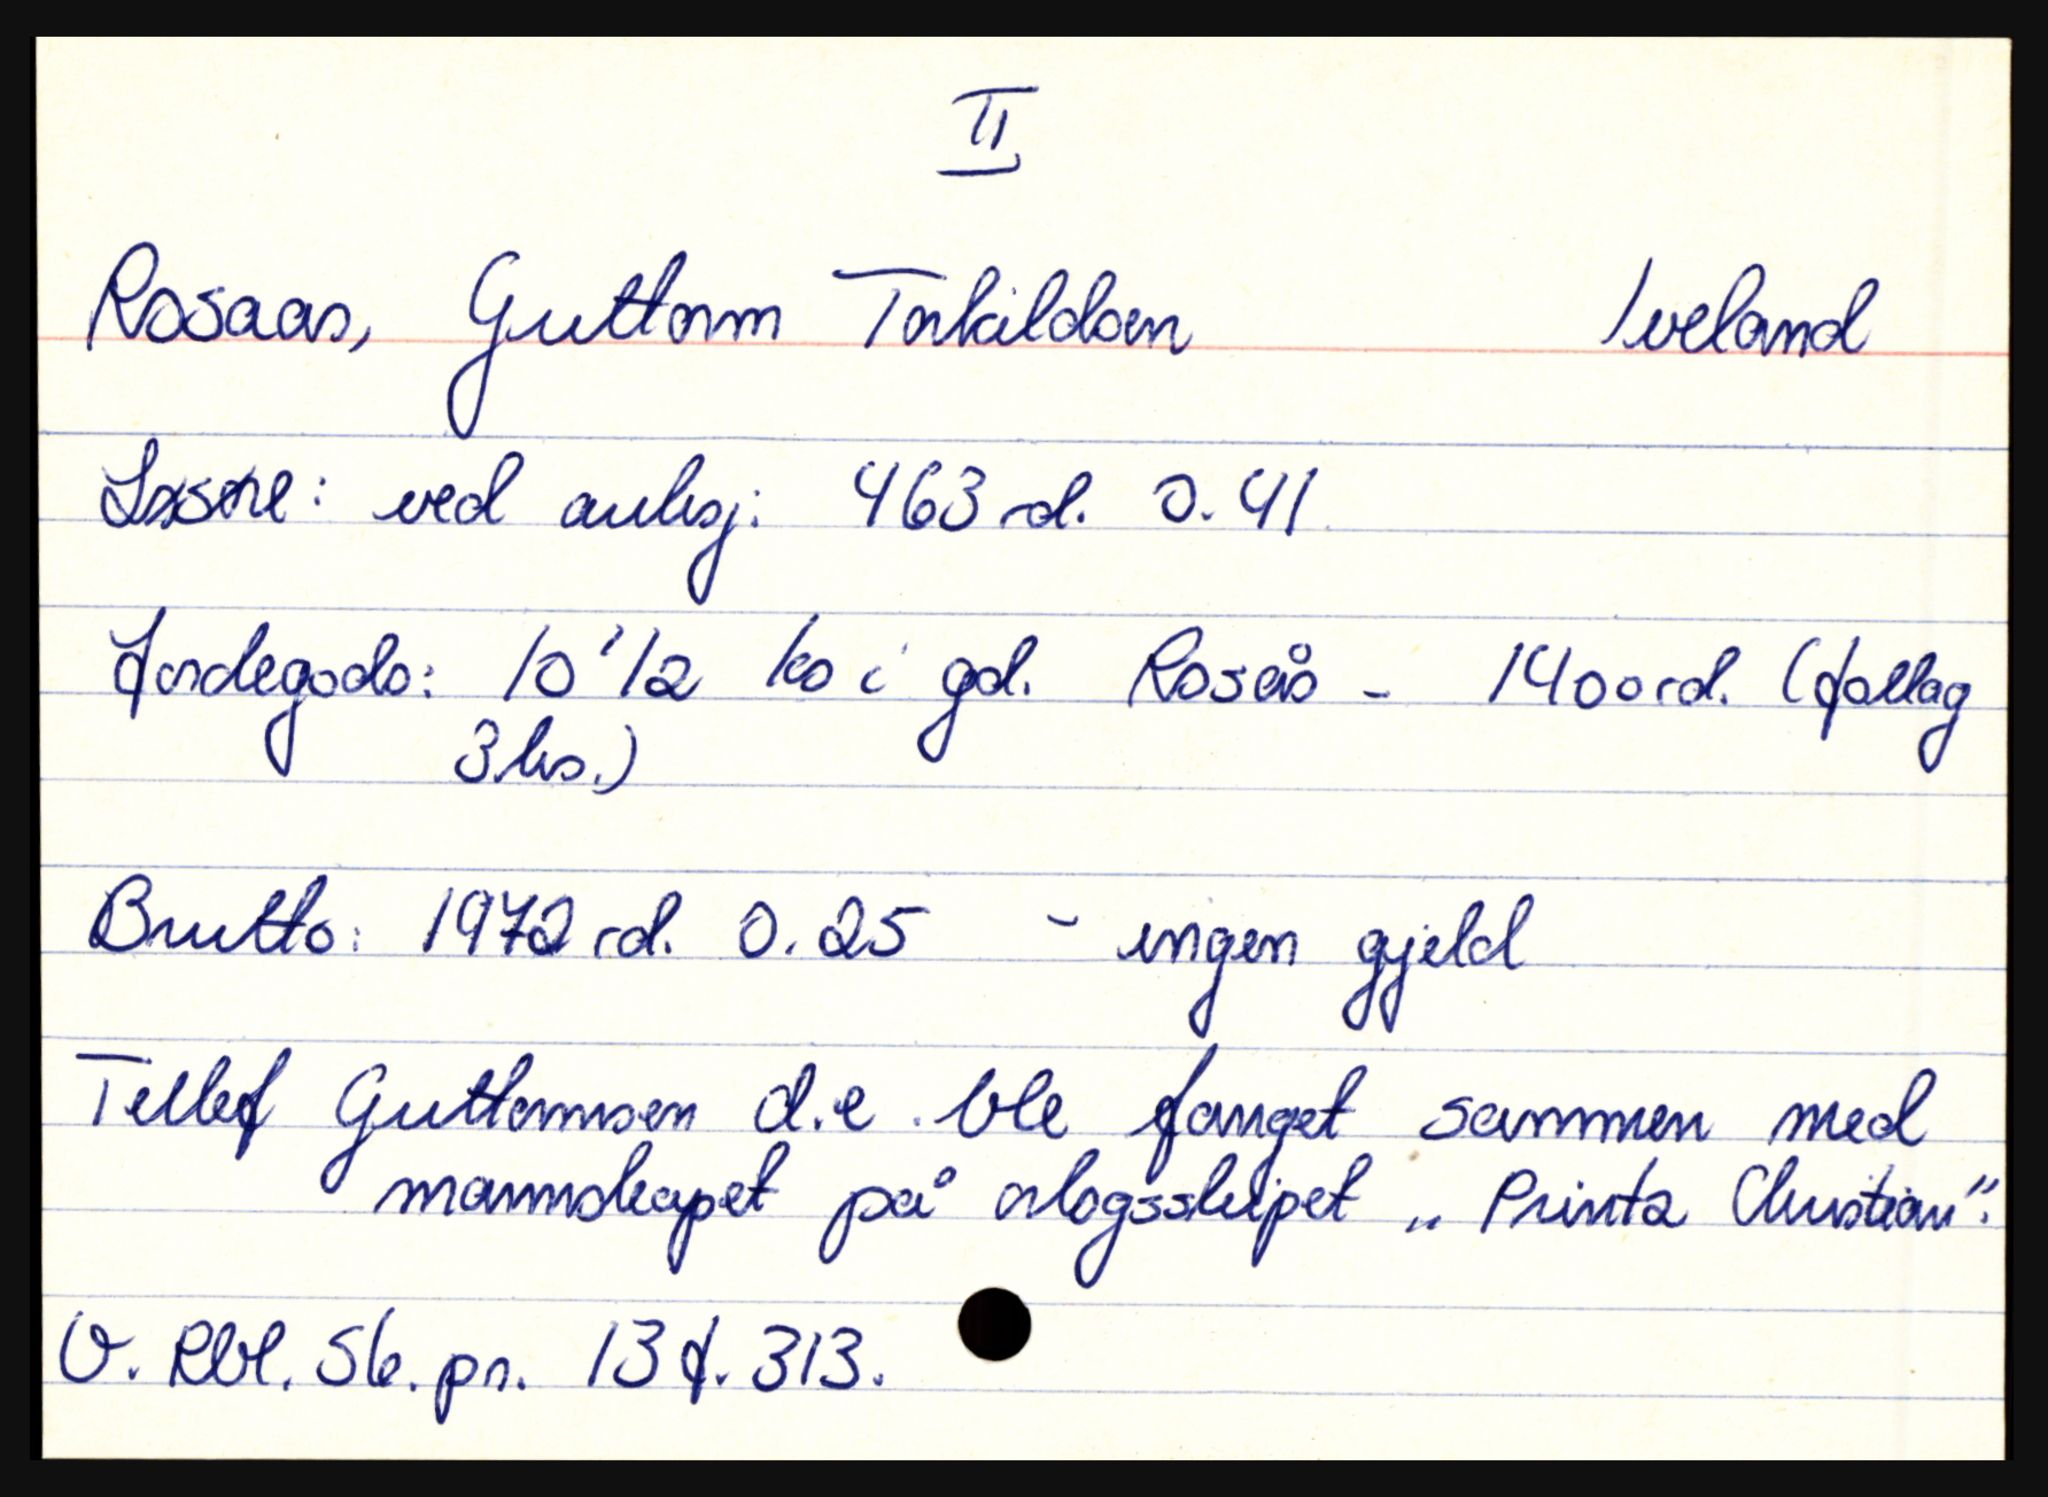 II
Rosaas, Guttorm Torkildsen Iveland
Løsøre: ved auksj: 463 rd. 0.41
Jordegods: 10 1/2 ks i gd. Rosås - 1400 rd. (fallag
3 ks.)
Brutto: 1972 rd. 0.25 - ingen gjeld
Tellef Guttormsen d.e. ble fanget sammen med
mannskapet på orlogsskipet „Printz Christian".
V. Rbl. Sk. pr. 13 f. 313.